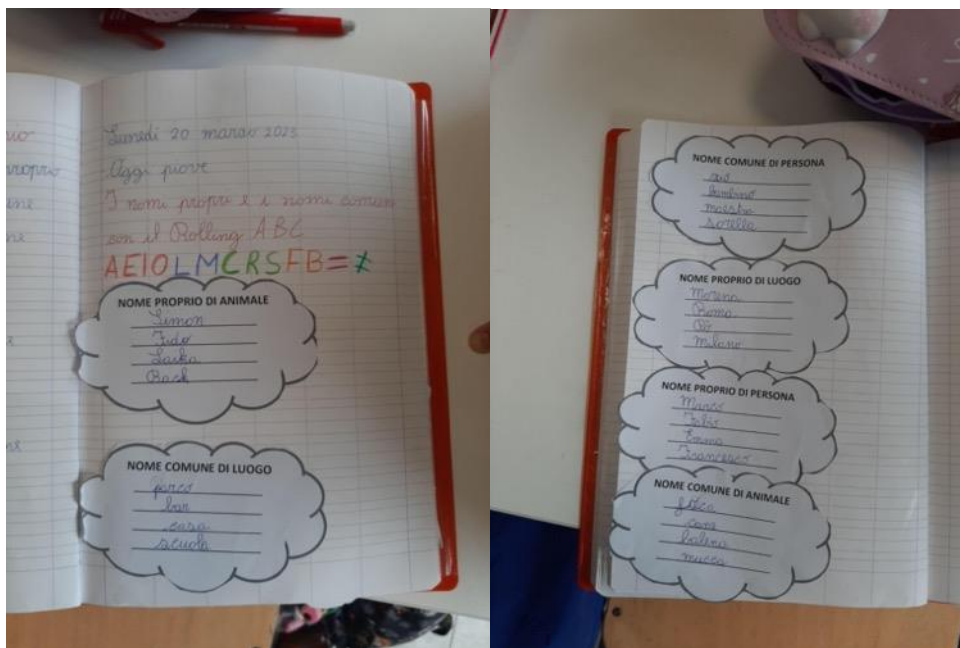 Lunedì 20 marzo 2023
Oggi piove
I nomi propri e i nomi comuni
con il Rolling ABC
AEIOLMCRSFB=≠
NOME PROPRIO DI ANIMALE
Simon
Fido
Laika
Rock
NOME COMUNE DI LUOGO
parco
bar
casa
scuola
NOME COMUNE DI PERSONA
zio
bambino
maestra
sorella
NOME PROPRIO DI LUOGO
Morena
Roma
Po
Milano
NOME PROPRIO DI PERSONA
Marco
Fabio
Emma
Francesco
NOME COMUNE DI ANIMALE
foca
cane
balena
mucca